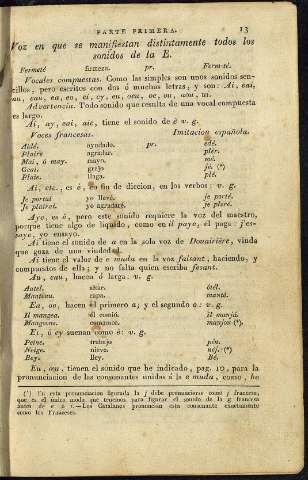 PARTE PRIMERA. 13
Voz en que se manifiestan distintamente todos los
sonidos de la E.
Fermeté firmeza. pr. Fermeté.
Vocales compuestas. Como las simples son unos sonidos sen-
cillos, pero escritos con dos ó muchas letras, y son: Ai, eai,
au, eau, ea, eo, ei, ey, eu, oeu, oe, ou, aou, ui.
Advertencia. Todo sonido que resulta de una vocal compuesta
es largo.
Ai, ay, eai, aie, tiene el sonido de é v. g.
Voces francesas. Imitacion española.
Aidé. ayudado. pr. édé.
Plaire agradar. plér.
Mai, ó may. mayo. mé.
Geai. grajo jé. (*)
Plaie. llaga. plé.
Ai, etc. es é, en fin de diccion, en los verbos: v. g.
Je portai yo llevé. je porté.
Je plairai. yo agradaré. je pleré.
Aye, es é, pero este sonido requiere la voz del maestro,
porque tiene algo de líquido, como en il paye, él paga: j'es-
saye, yo ensayo.
Ai tiene el sonido de a en la sola voz de Douairière, viuda
que goza de una viudedad.
Ai tiene el valor de e muda en la voz faisant, haciendo, y
compuestos de ella; y no falta quien escriba fesant.
Au, eau, hacen ó larga: v. g.
Autel. altar. ótél.
Manteau. capa. mantó.
Ea, eo, hacen el primero a; y el segundo o: v. g.
Il mangea. él comió. il manjá.
Mangeons. comamos. manjon (*)
Ei, ó ey suenan como é: v. g.
Peine. trabajo pén.
Neige. nieve. néj. (*)
Bey. Bey. Bé.
Eu, œu, tienen el sonido que he indicado, pag. 10, para la
pronunciacion de las consonantes unidas á la e muda, como, be
(*) En esta pronunciacion figurada la j debe pronunciarse como j francesa,
que es el único modo que tenemos para figurar el sonido de la g francesa
antes de e ó i.—Los Catalanes pronuncian esta consonante exactamente
como los Franceses.